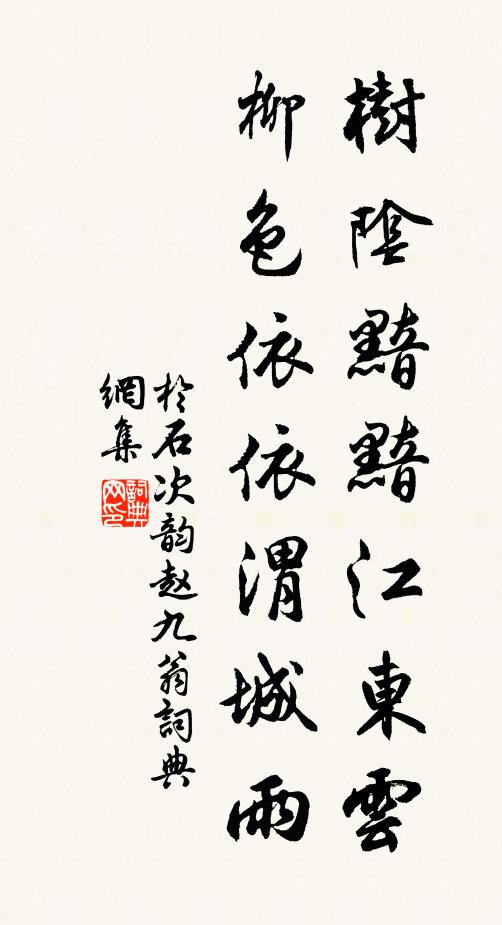 樹陰黯黯江東雲
柳色依依渭城雨
於石次韵赵九翁詞典
網集
詞典
网印